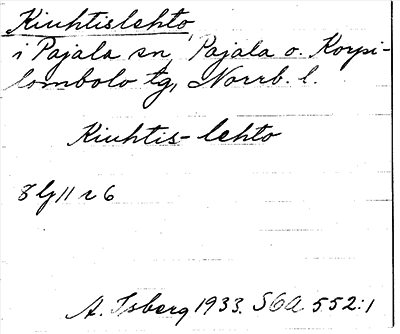 Kiuhtislehto
i Pajala sn, Pajala o. Korpi-
lombolo tg, Norrb. l.
Kiuhtis-lehto
A. Isberg 1933. SOA. 552:1